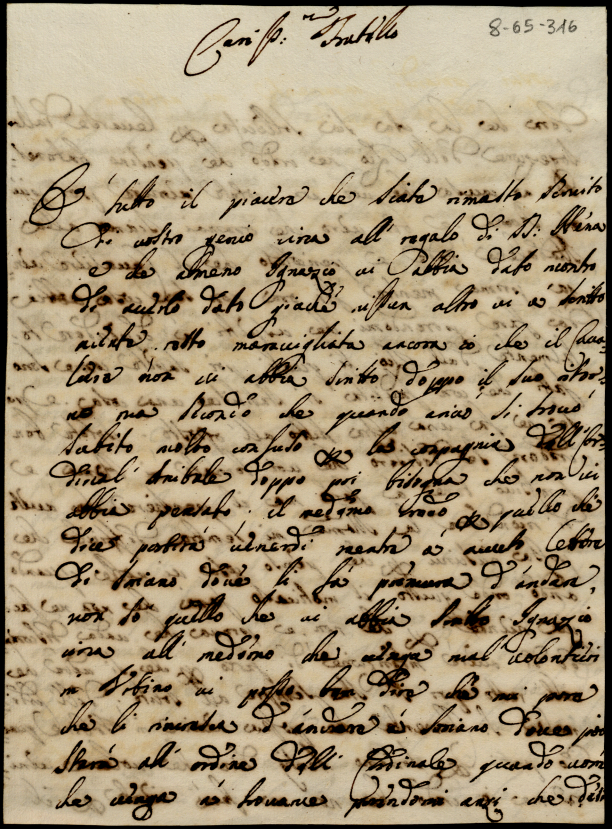 8-65-316
Cariss:mo Fratello
È tutto il piacere che siate rimasto servito
di vostro genio circa all' regalo di D: Elena
e che almeno Ignazio vi l'abbia dato
di dato nissun altro vi à scritto
resto maravigliata ancora io che il Cava=
liere non vi abbia scritto doppo il suo ritor=
no ma secondo che quando arivò si trovò
subito molto confuso per la compagnia dell'
Anibale doppo poi bisogna che non vi
abbia pensato. il medemo credo per quello che
dice partirà venerdì mentre à auto lettere
di Soriano dove li fà premura d'andare,
non so quello che vi abbia scritto Ignazio
circa all' medemo che venga mal volontieri
in Urbino vi posso ben dire che mi pare
che li rincresca d'andare à Soriano dove poi
starà all' ordine dell' Cardinale quando vorrà
che venga à trovarme anzi che